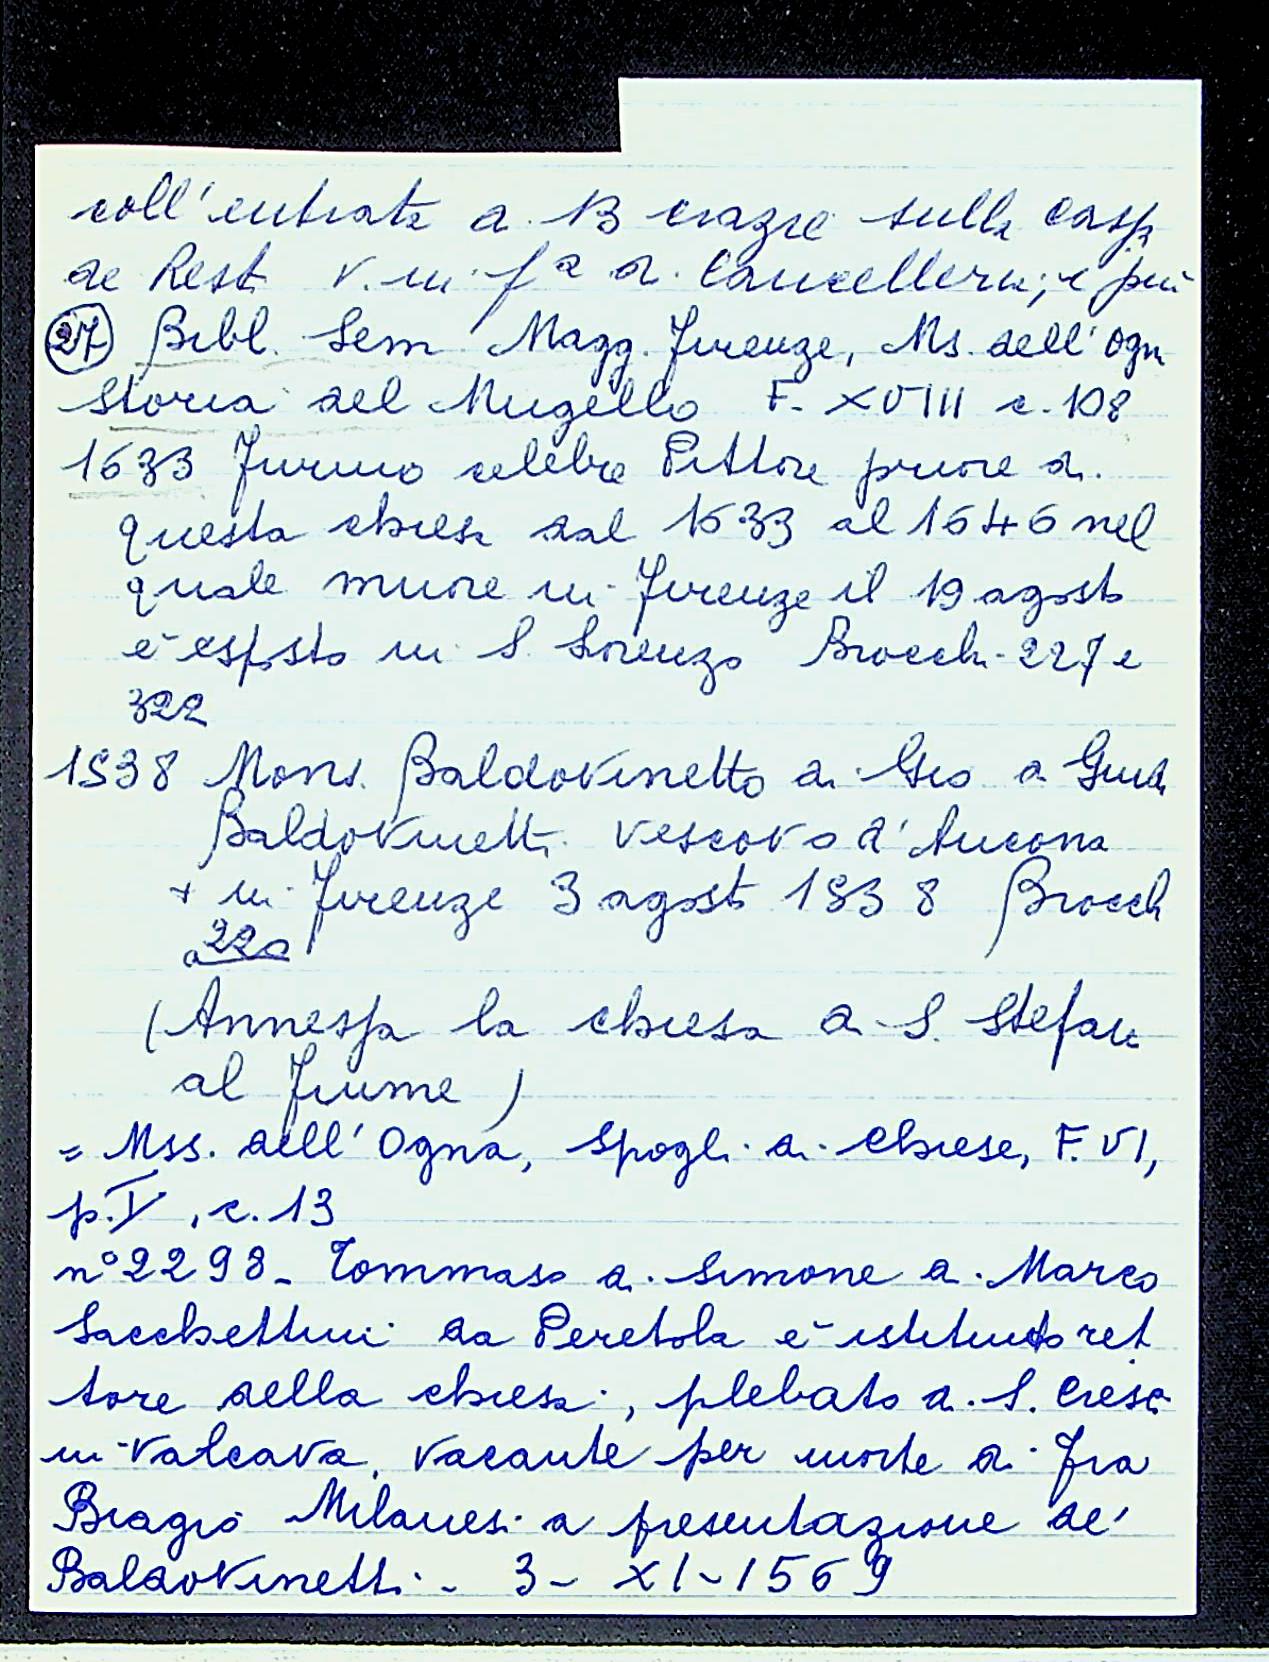 coll'entrata di 13 crazie sulla Cassa
de Rest. V. in fa di Cancelleria; e più
(27) Bibl. Sem Magg. Firenze, Ms. dell'Ogna
Storia del Mugello F. XVIII c. 108
1633 Furino celebre Pittore priore di
questa chiesa dal 1633 al 1646 nel
quale muore in Firenze il 19 agosto
è esposto in S. Lorenzo Brocchi 227 e
322
1538 Mons. Baldovinetto di Gio di Guido
Baldovinetti vescovo d'Ancona
+ in Firenze 3 agosto 1538 Brocchi
a 220
(Annessa la chiesa a S. Stefano
al Fiume)
= Mss. dell'Ogna, Spogli di chiese, F. VI,
p. V, c. 13
n° 2298 - Tommaso di Simone di Marco
Sacchettini da Peretola è istituito ret
tore della chiesa, plebato di S. Cresci
in Valcava, vacante per morte di Fra
Biagio Milanesi a presentazione de'
Baldovinetti - 3 - XI - 1569